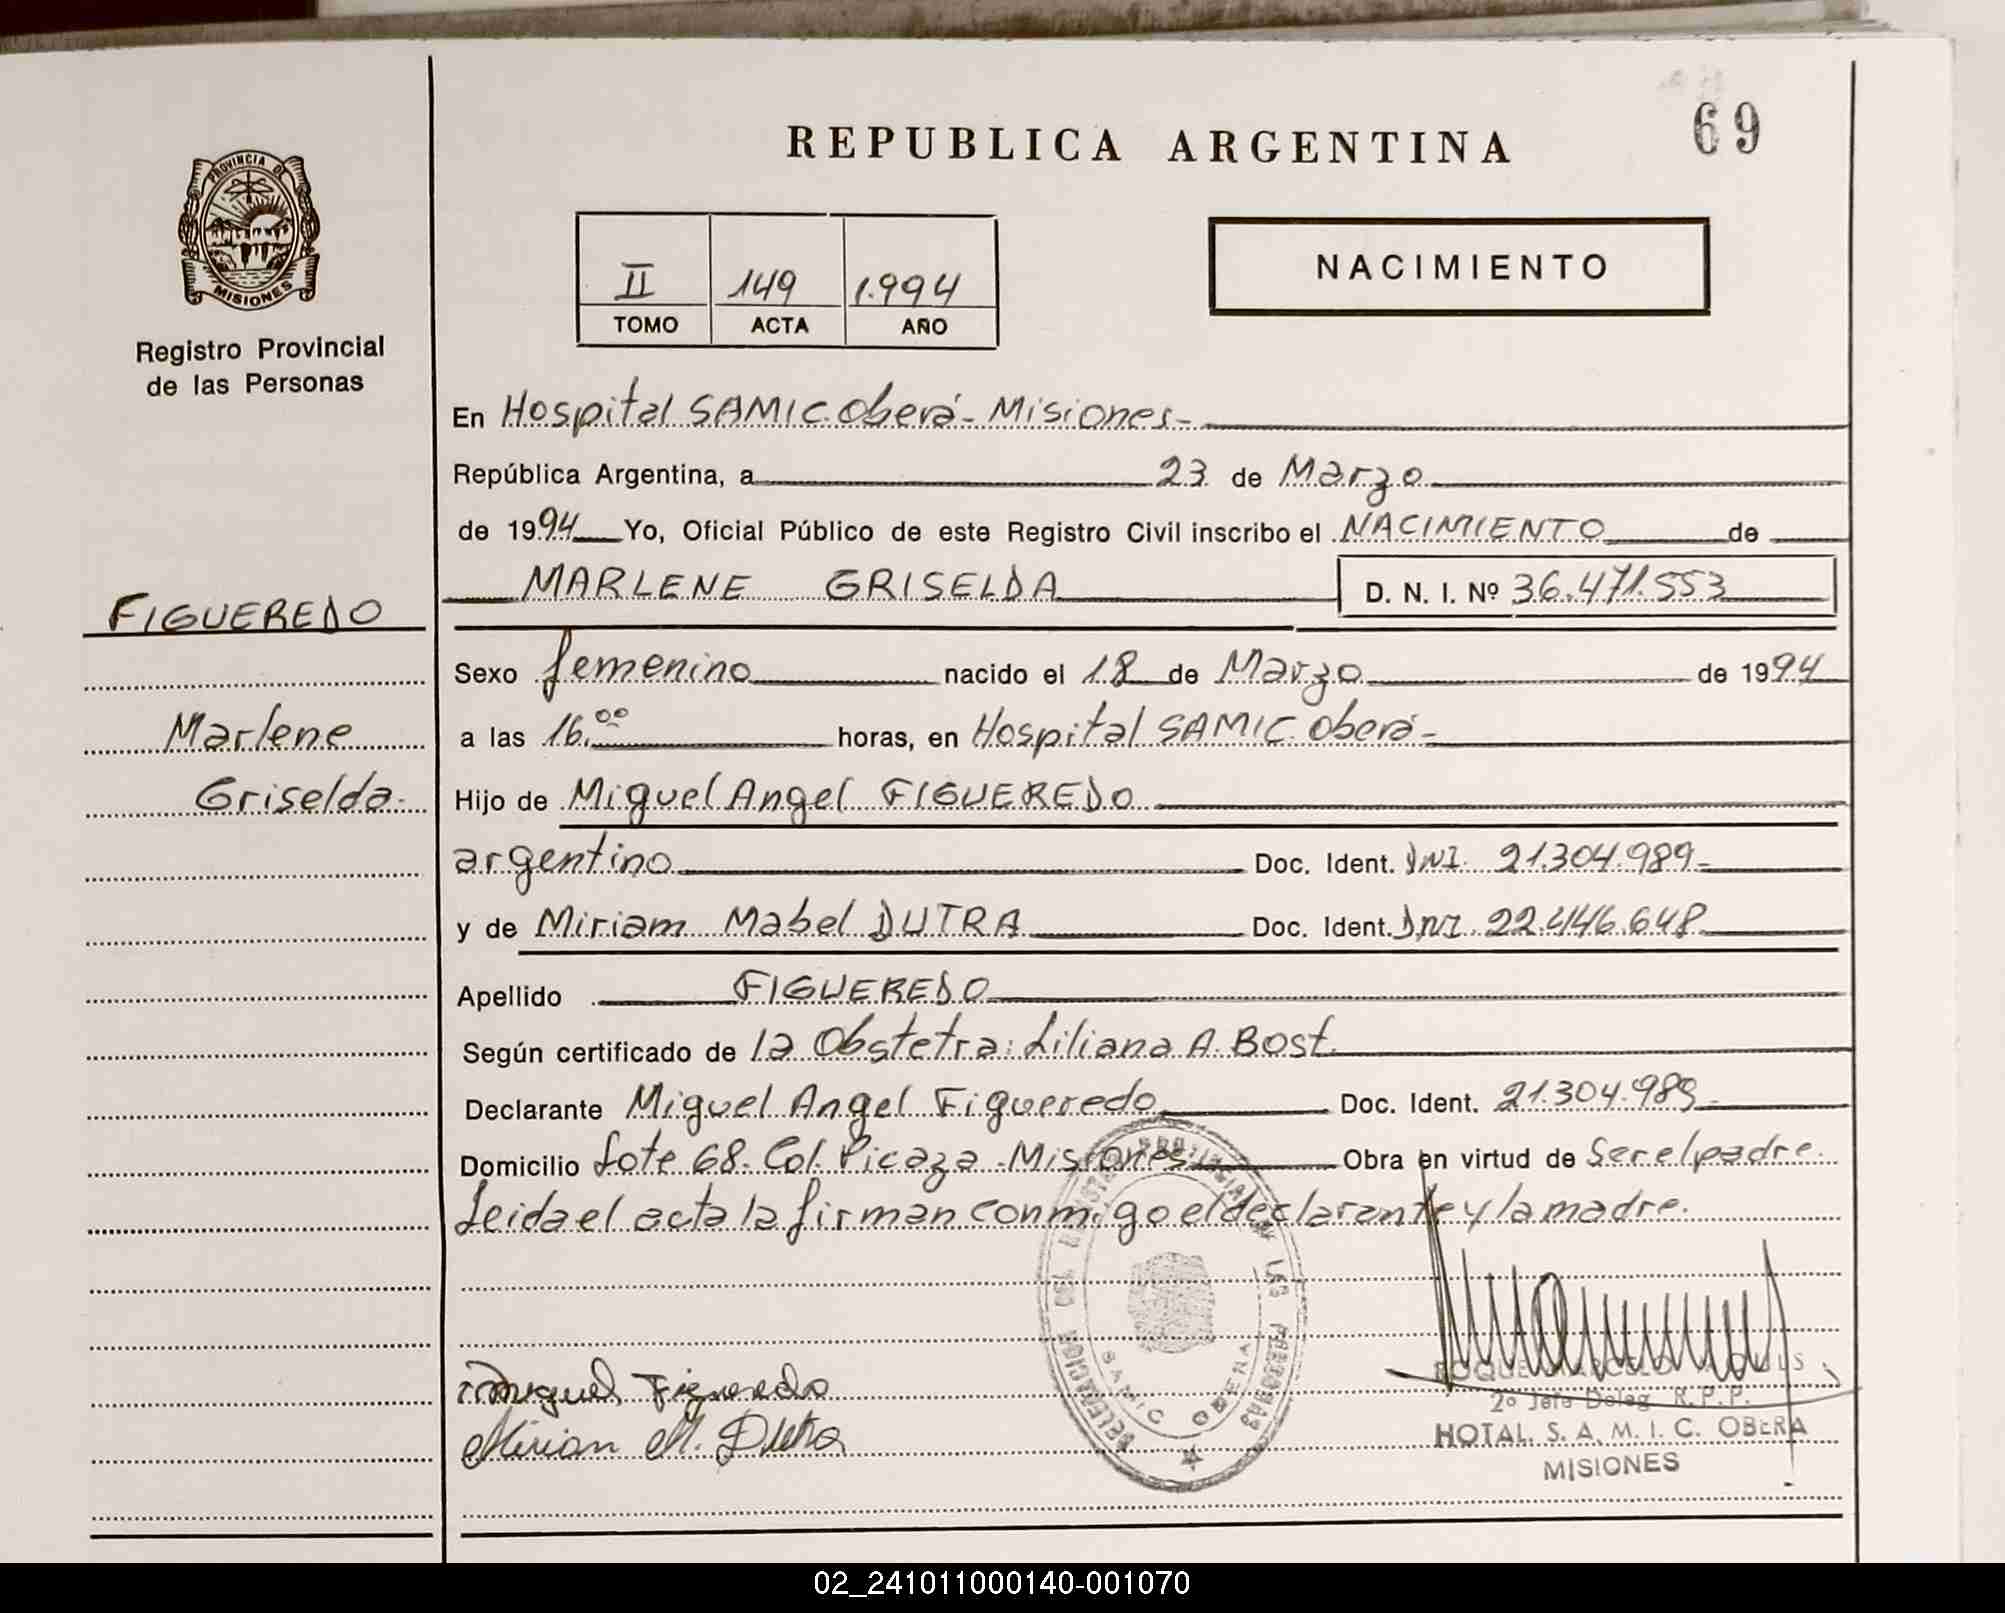 69
REPUBLICA ARGENTINA
PROVINCIA DE
MISIONES
Registro Provincial
de las Personas
NACIMIENTO
II 149 1.994
TOMO ACTA AÑO
En Hospital SAMIC. Oberá - Misiones -
República Argentina, a 23 de Marzo
de 1994 Yo, Oficial Público de este Registro Civil inscribo el NACIMIENTO de
MARLENE GRISELDA D. N. I. Nº 36.471.553
FIGUEREDO
Sexo femenino nacido el 18 de Marzo de 1994
Marlene
a las 16.00 horas, en Hospital SAMIC. Oberá -
Griselda.
Hijo de Miguel Angel FIGUEREDO
argentino Doc. Ident. DNI. 21.304.989
y de Miriam Mabel DUTRA Doc. Ident. DNI. 22.446.648
Apellido FIGUEREDO
Según certificado de la Obstetra: Liliana A. Bost.
Declarante Miguel Angel Figueredo Doc. Ident. 21.304.989
Domicilio Lote 68. Col. Picaza - Misiones Obra en virtud de Ser el padre.
Leida el acta la firman conmigo el declarante y la madre.
DELEGACION DEL REGISTRO PROVINCIAL DE LAS PERSONAS
SAMIC OBERA
Miguel Figueredo
Mirian M. Dutra
ROQUE
2º Jefe Deleg. R.P.P.
HOTAL. S. A. M. I. C. OBERA
MISIONES
02_241011000140-001070